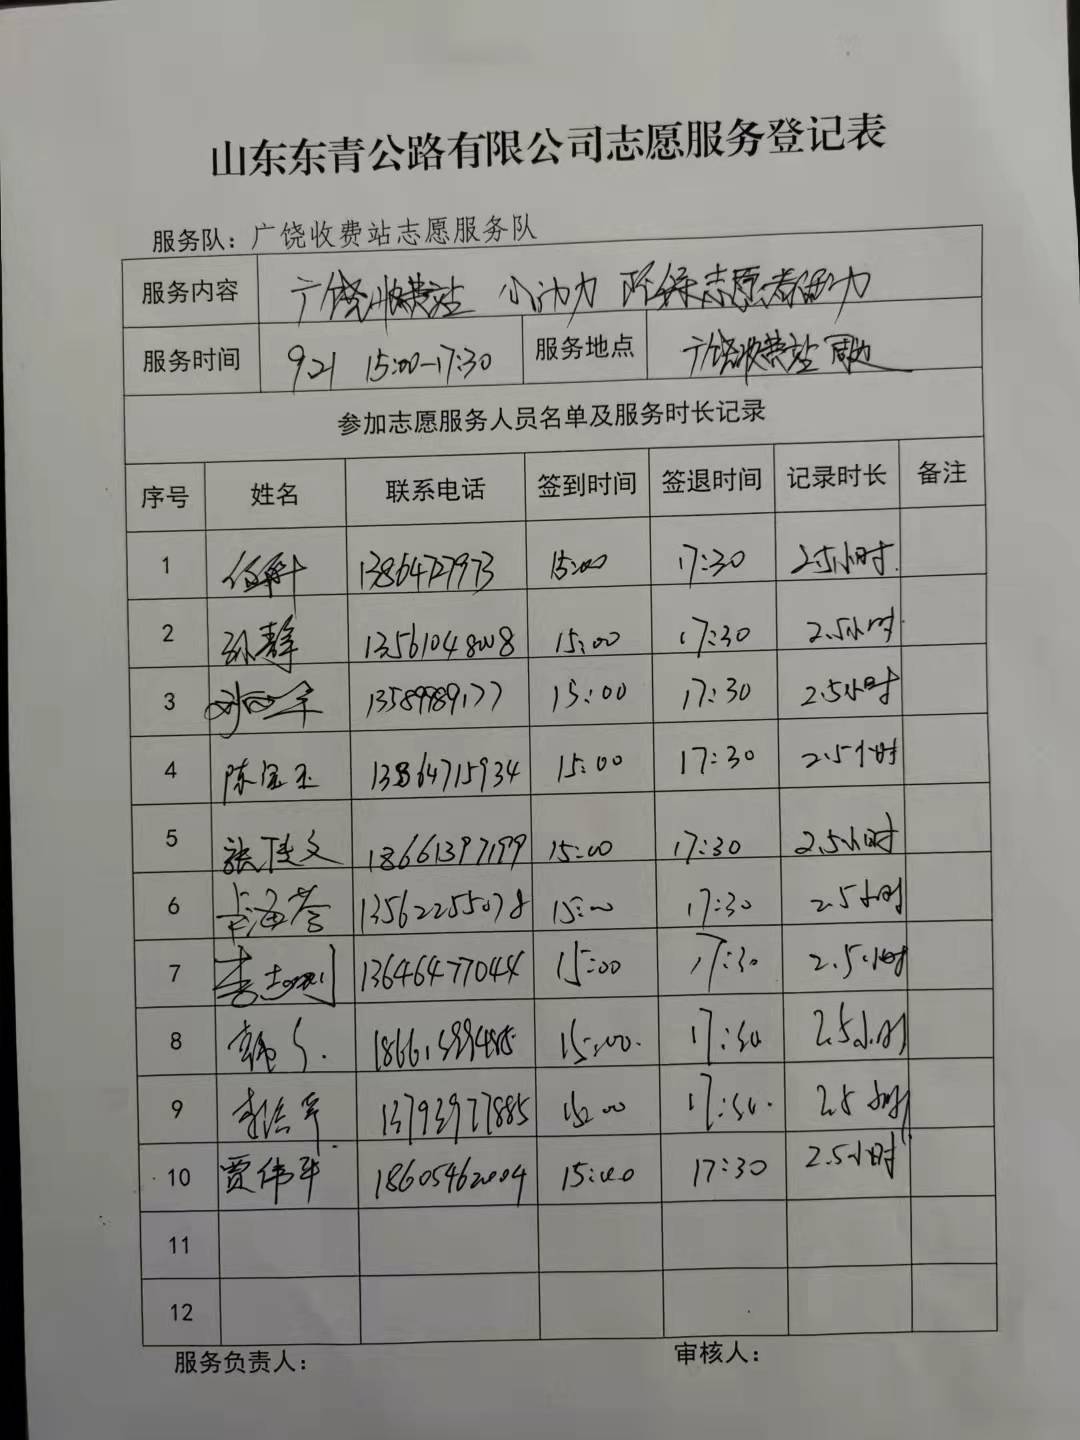 山东东青公路有限公司志愿服务登记表
服务队：广饶收费站志愿服务队
服务内容 广饶收费站 小动力 志愿者助力
服务时间 9.21 15:00-17:30 服务地点 广饶收费站周边
参加志愿服务人员名单及服务时长记录
序号 姓名 联系电话 签到时间 签退时间 记录时长 备注
1 13864727973 15:00 17:30 2.5小时
2 孙静 13561048008 15:00 17:30 2.5小时
3 13589989177 15:00 17:30 2.5小时
4 陈宝玉 13864715934 15:00 17:30 2.5小时
5 張佳文 18661397199 15:00 17:30 2.5小时
6 卡海誉 13562255078 15:00 17:30 2.5小时
7 李志刚 13646477044 15:00 17:30 2.5小时
8 15:00 17:30 2.5小时
9 13793977885 15:00 17:30 2.5小时
10 贾伟华 18605462004 15:00 17:30 2.5小时
11
12
服务负责人： 审核人：